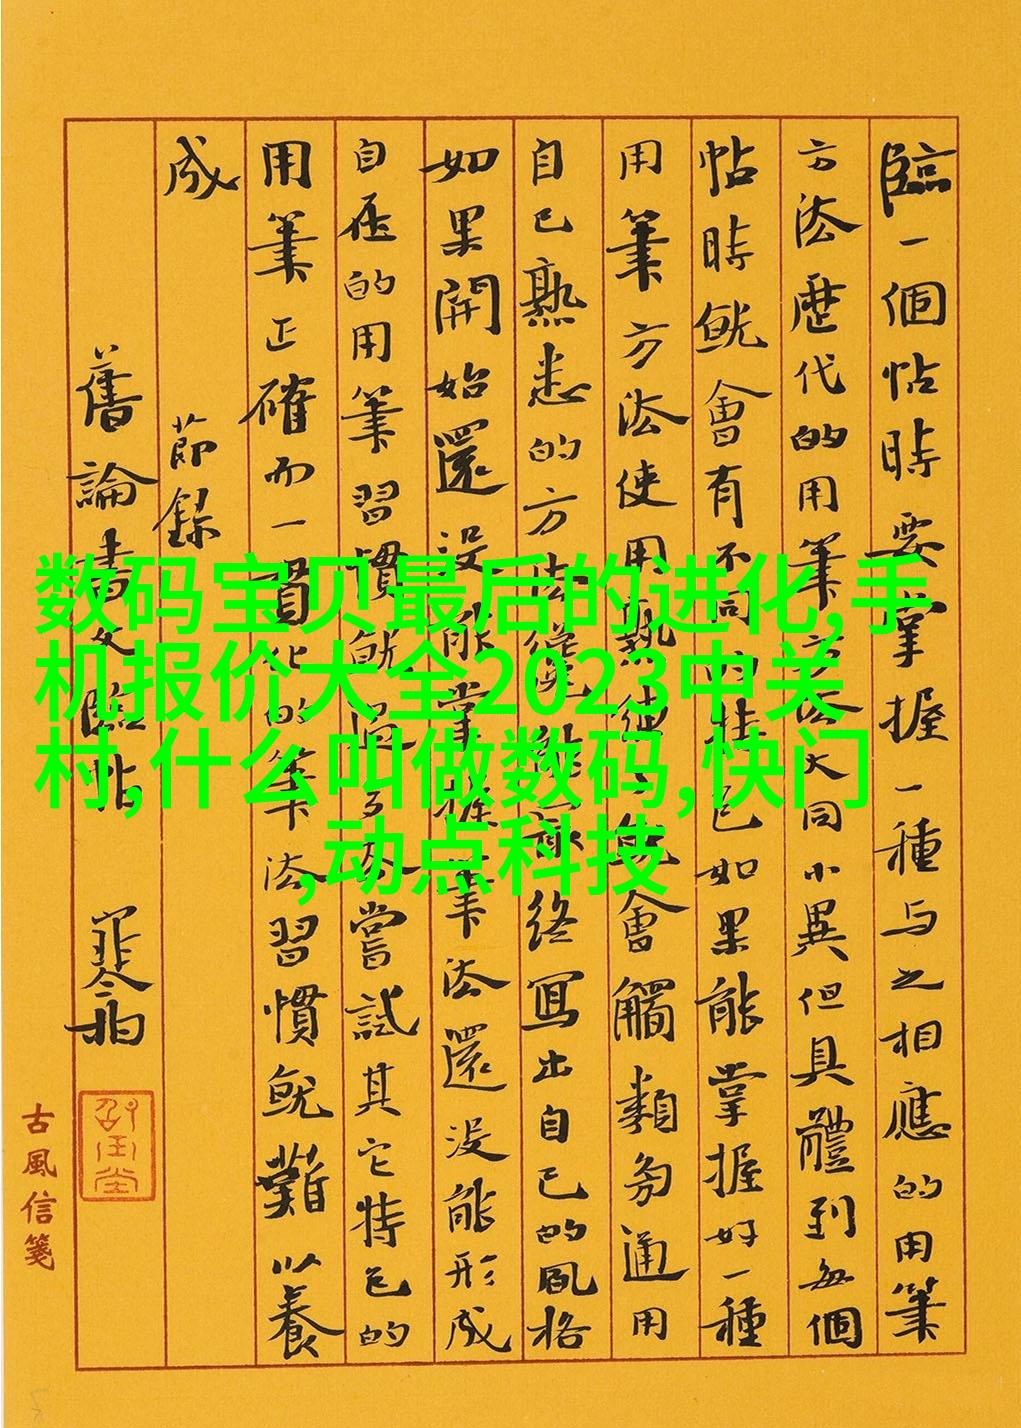 臨一個帖時要掌握一種与之相應的用筆
方法歷代的用筆方法大同小異但具體到每個
帖時就會有不同的特色如果能掌握好一種
用筆方法使用熟練就會觸類旁通用
自己熟悉的方法從能最終寫出自己的風格
如果開始還没能掌握筆法還没能形成
自在的用筆習慣就過多去嘗試其它特色的
用筆正確而一貫化的筆法習慣就難以養
成 節錄
舊論書文臨帖
古風信箋
数码宝贝最后的进化,手
机报价大全2023中关
村,什么叫做数码,快门
,动点科技